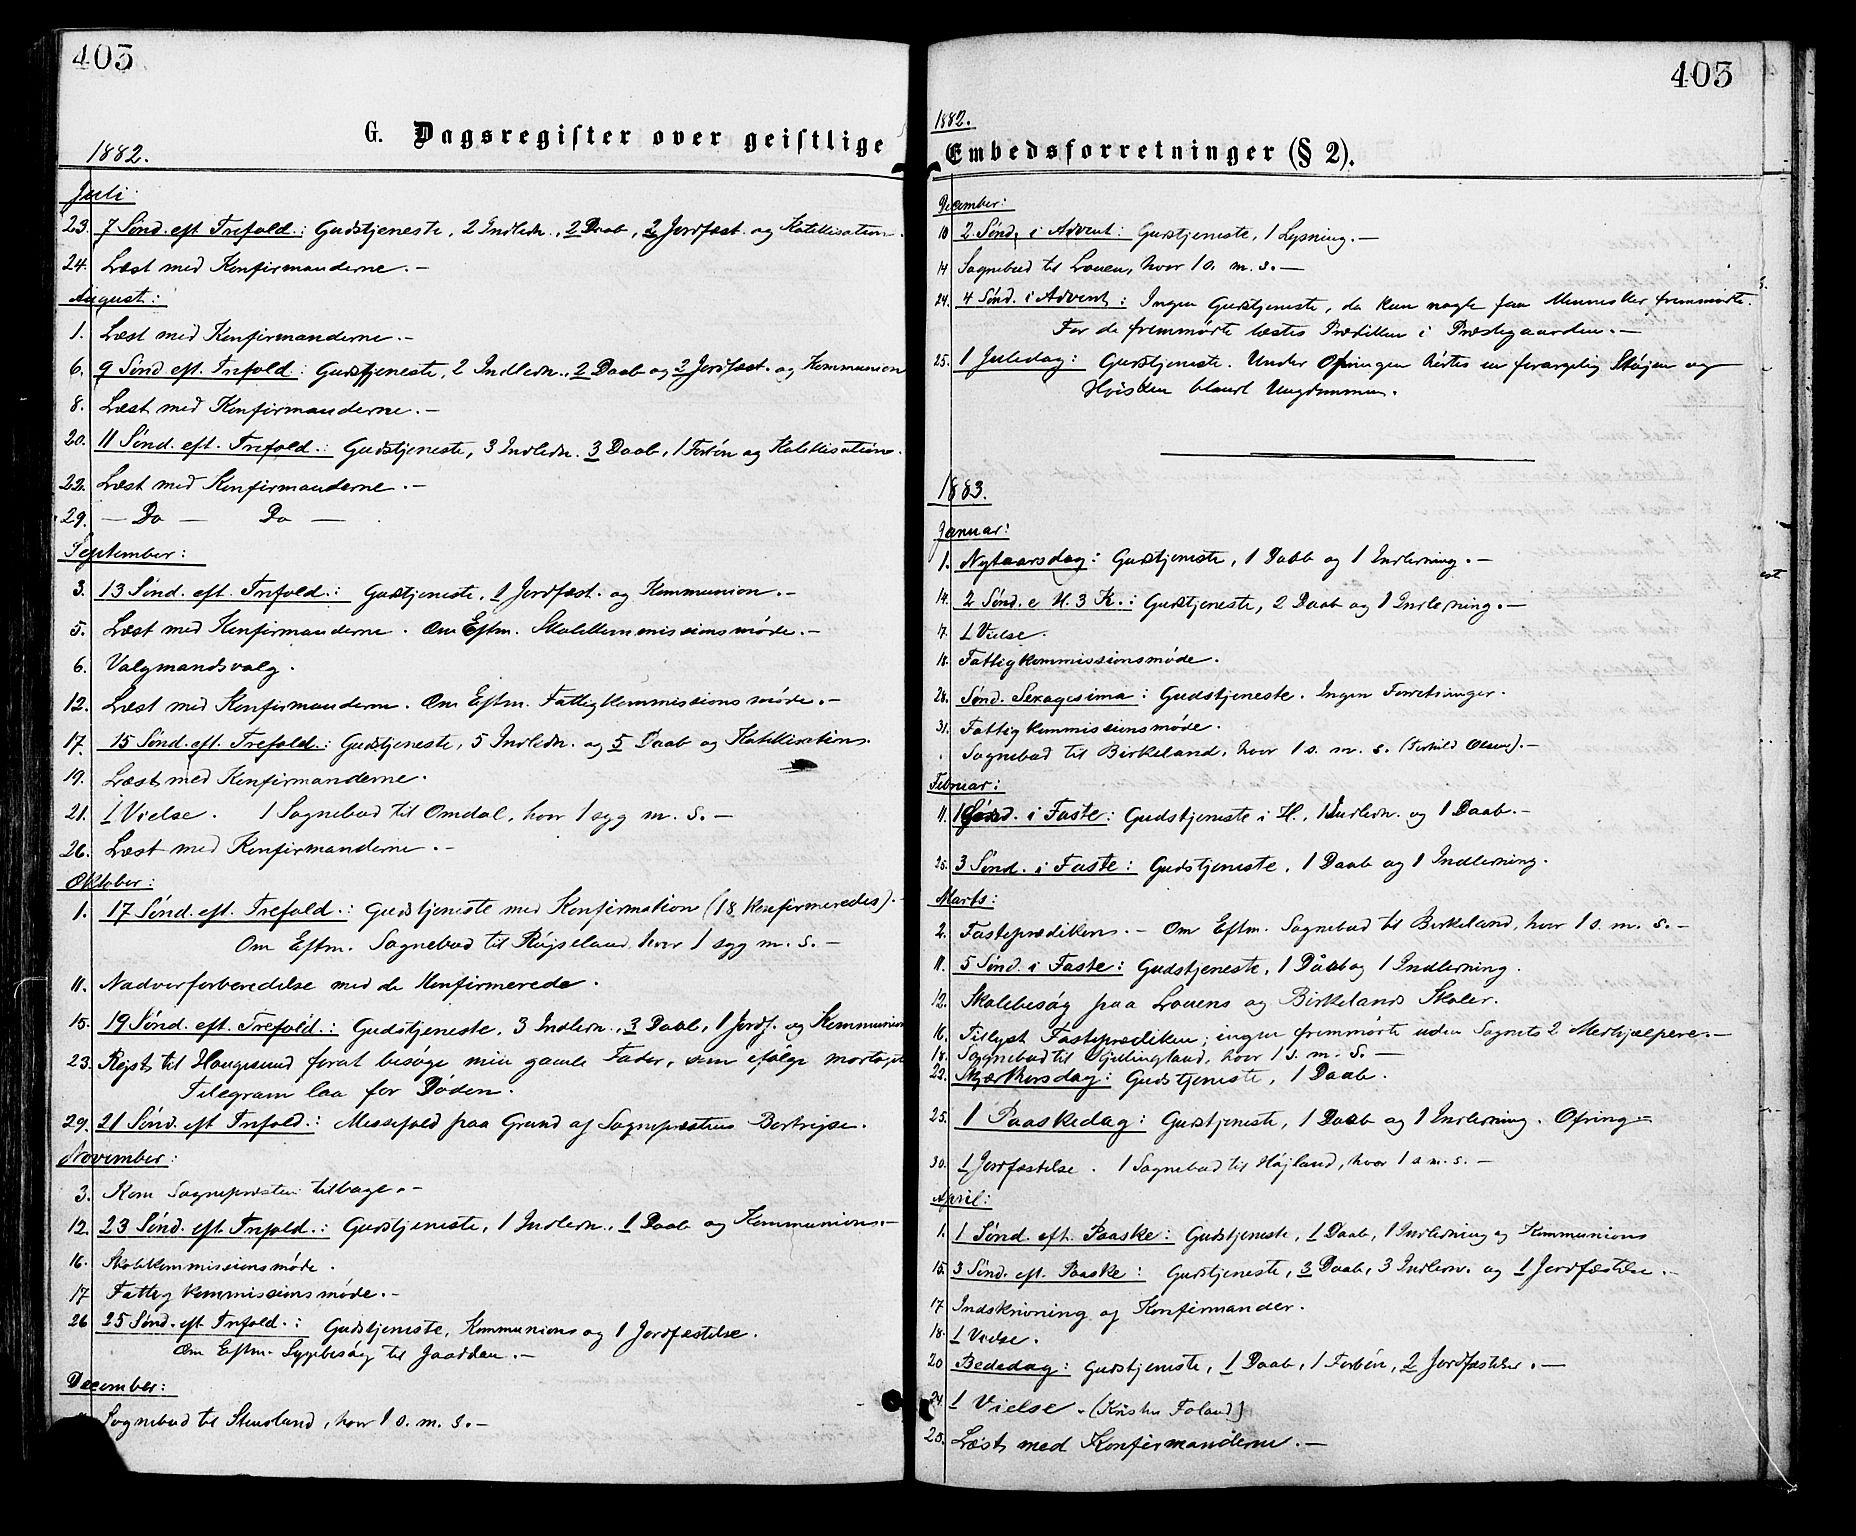 403
G. Dagsregister over geistlige
1882.
Juli:
23. 7 Sønd. eft. Trefold.: Gudstjeneste, 2 Indledn., 2 Daab, 2 Jordfæst. og Katekisation.
24. Læst med Konfirmanderne. —
August:
1. Læst med Konfirmanderne. —
6. 9 Sønd. eft. Trefold.: Gudstjeneste, 2 Indledn., 2 Daab og 2 Jordfæst. og Kommunion
8. Læst med Konfirmanderne. —
20. 11 Sønd. eft. Trefold.: Gudstjeneste, 3 Indledn. 3 Daab, 1 Forbøn og Katekisation.
22. Læst med Konfirmanderne. —
29. — Do — Do —
September:
3. 13 Sønd. eft. Trefold.: Gudstjeneste, 1 Jordfæst. og Kommunion. —
5. Læst med Konfirmanderne. Om Eftm. Skolekommissionsmøde. —
6. Valgmandsvalg.
12. Læst med Konfirmanderne. Om Eftm. Fattigkommissionsmøde. —
17. 15 Sønd. eft. Trefold.: Gudstjeneste, 5 Indledn. og 5 Daab og Katekisation.
19. Læst med Konfirmanderne.
21. 1 Vielse. 1 Sognebud til Omdal, hvor 1 syg m. s. —
26. Læst med Konfirmanderne. —
Oktober:
1. 17 Sønd. eft. Trefold.: Gudstjeneste med Konfirmation (18 Konfirmeredes). —
Om Eftm. Sognebud til Røjseland, hvor 1 syg m. s. —
11. Nadverforberedelse med de Konfirmerede.
15. 19 Sønd. eft. Trefold.: Gudstjeneste, 3 Indledn., 3 Daab, 1 Jordf. og Kommunion
23. Rejst til Haugesund forat besøge min gamle Fader, som ifølge modtaget
Telegram laa for Døden.
29. 21 Sønd. eft. Trefold.: Messefald paa Grund af Sognepræstens Bortrejse.
November:
3. Kom Sognepræsten tilbage. —
12. 23 Sønd. eft. Trefold.: Gudstjeneste, 1 Indledn., 1 Daab og Kommunion. —
16. Skolekommissionsmøde.
17 Fattigkommissionsmøde. —
26 25 Sønd. eft. Trefold.: Gudstjeneste, Kommunion og 1 Jordfæstelse.
Om Eftm. Sygebesøg til Jaaddan. —
December:
Sognebud til Stusland, hvor 1 s. m. s. —
403
1882.
Embedsforretninger (§ 2).
December:
10 2 Sønd. i Advent: Gudstjeneste, 1 Lysning. —
14 Sognebud til Lauen, hvor 1 s. m. s. —
24. 4 Sønd. i Advent: Ingen Gudstjeneste, da kun nogle faa Mennesker fremmødte.
For de fremmødte læstes Prædiken i Præstegaarden. —
25. 1 Juledag: Gudstjeneste. Under Ofringen hørtes en forargelig Støjen og
Hvisken blandt Ungdommen.
1883.
Januar:
1. Nytaarsdag: Gudstjeneste, 1 Daab og 1 Indledning. —
14. 2 Sønd. e H. 3 K.: Gudstjeneste, 2 Daab og 1 Indledning. —
17. 1 Vielse.
18. Fattigkommissionsmøde.
28. Sønd. Sexagesima: Gudstjeneste. Ingen Forretninger.
31. Fattigkommissionsmøde.
Sognebud til Birkeland, hvor 1 s. m. s. (Torkild Olsen). —
Februar:
11. 1 Sønd. i Faste: Gudstjeneste i H., 1 Indledn. og 1 Daab. —
25. 3 Sønd. i Faste: Gudstjeneste, 1 Daab og 1 Indledning.
Marts:
2. Fasteprædiken. — Om Eftm. Sognebud til Birkeland, hvor 1 s. m. s. —
11. 5 Sønd. i Faste: Gudstjeneste, 1 Daab og 1 Indledning.
12. Skolebesøg paa Lauens og Birkelands Skoler.
16. Tillyst Fasteprædiken; ingen fremmødte uden Sognets 2 Medhjælpere. —
18. Sognebud til Kjelingland, hvor 1 s. m. s. —
22. Skjærthorsdag: Gudstjeneste, 1 Daab.
25. 1 Paaskedag: Gudstjeneste, 1 Daab og 1 Indledning. Ofring. —
30. 1 Jordfæstelse. 1 Sognebud til Højland, hvor 1 s m. s. —
April:
1. 1 Sønd. eft. Paaske: Gudstjeneste, 1 Daab, 1 Indledning og Kommunion
15. 3 Sønd. eft. Paaske: Gudstjeneste, 3 Daab, 3 Indledn. og 1 Jordfæstelse. —
17 Indskrivning af Konfirmander.
18. 1 Vielse.
20 Bededag: Gudstjeneste, 1 Daab, 1 Forbøn, 2 Jordfæstelser. —
24. 1 Vielse. (Kristen Foland)
25. Læst med Konfirmanderne. —